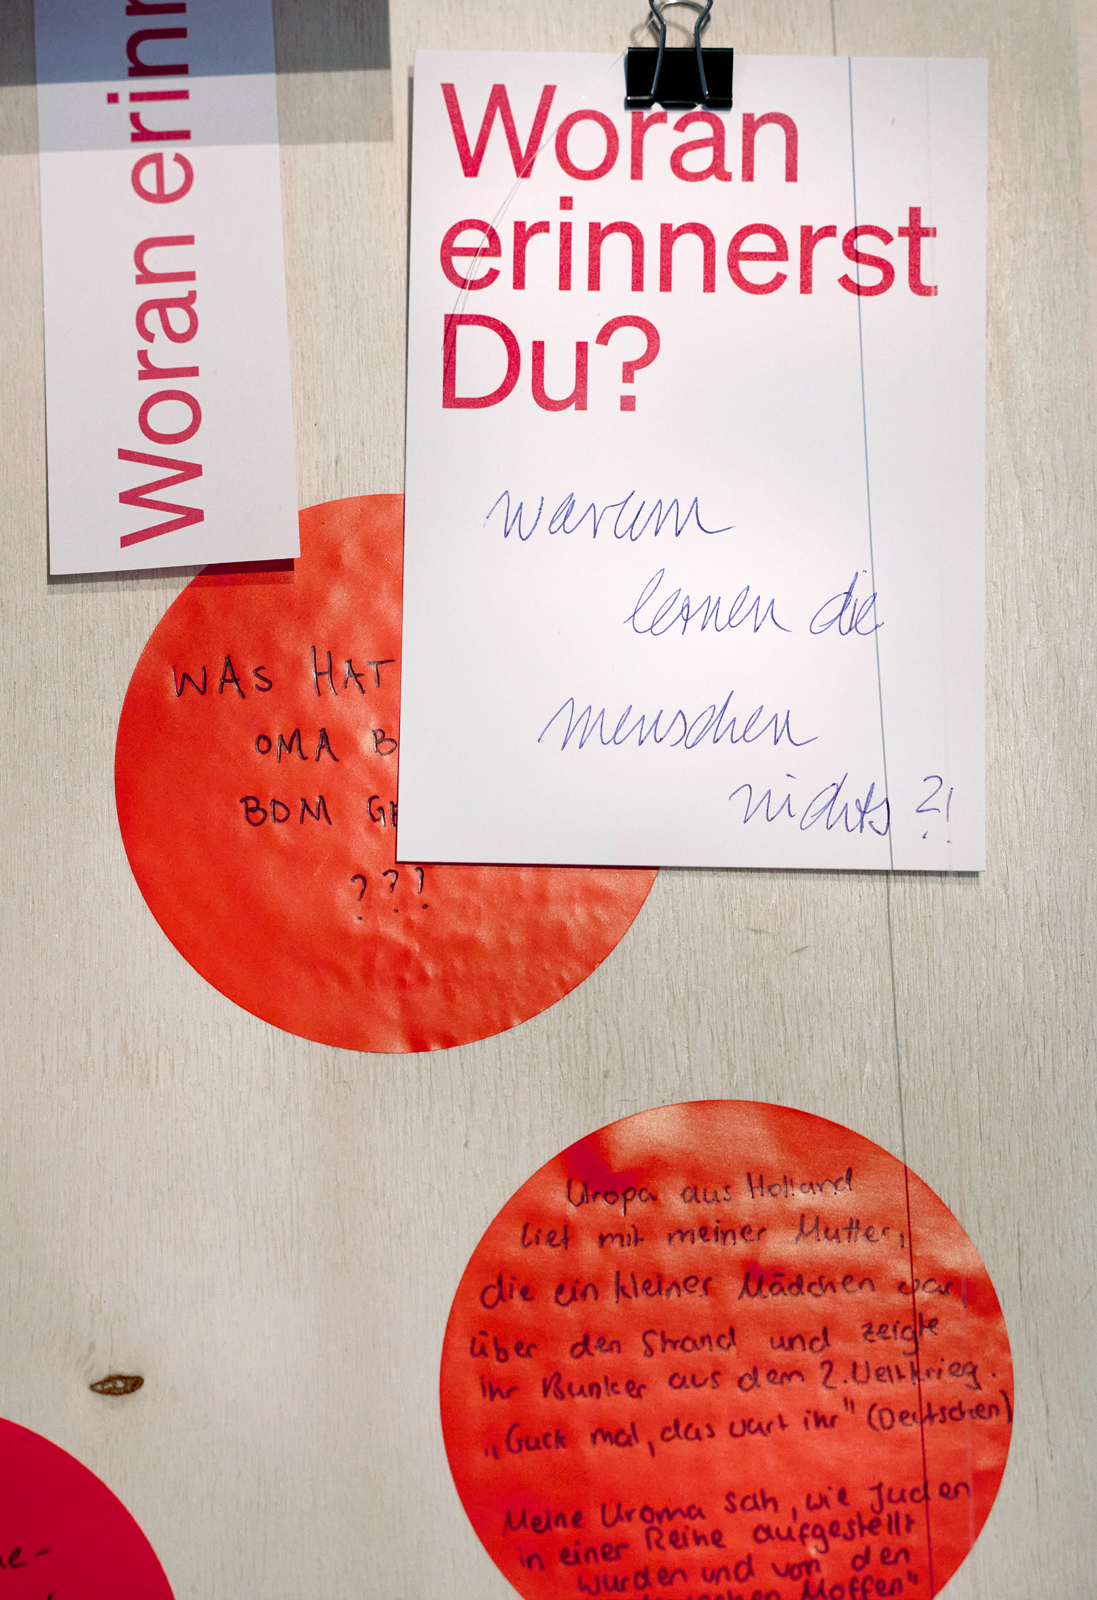 Woran erinn
Woran
erinnerst
Du?
warum
lernen die
menschen
nichts?!
WAS HAT
OMA B
BDM GE
???
Uropa aus Holland
lief mit meiner Mutter,
die ein kleines Mädchen war,
über den Strand und zeigte
ihr Bunker aus dem 2. Weltkrieg.
„Guck mal, das wart ihr" (Deutschen)
Meine Uroma sah, wie Juden
in einer Reihe aufgestellt
wurden und von den
Moffen"
ne-